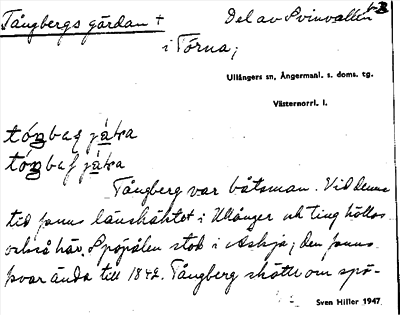 Tångbergs gärdan +
Del av Svinvallen
i Torna;
Ullångers sn, Ångermanl. s. doms. tg.
Västernorrl. l.
Tångberg var båtsman. Vid denna
tid fanns länshäktet i Ullånger och ting hölls
också här. Spöpålen stod i Askja; den fanns
kvar ända till 1842. Tångberg skötte om spö-
Sven Hiller 1947